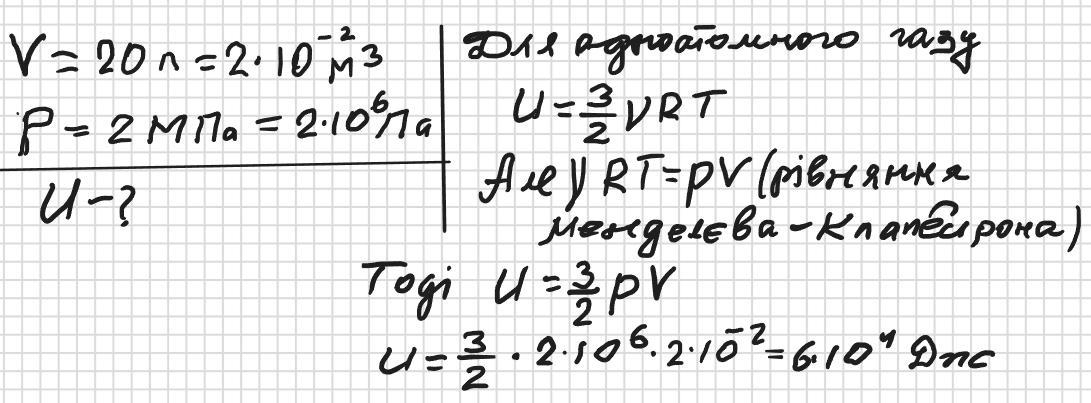 V = 20 л = 2·10⁻² м³
P = 2 МПа = 2·10⁶ Па
U - ?
Для одноатомного газу
U = 3/2 νRT
Але νRT = pV (рівняння
менделєєва - Клапейрона)
Тоді U = 3/2 pV
U = 3/2 · 2·10⁶ · 2·10⁻² = 6·10⁴ Дж